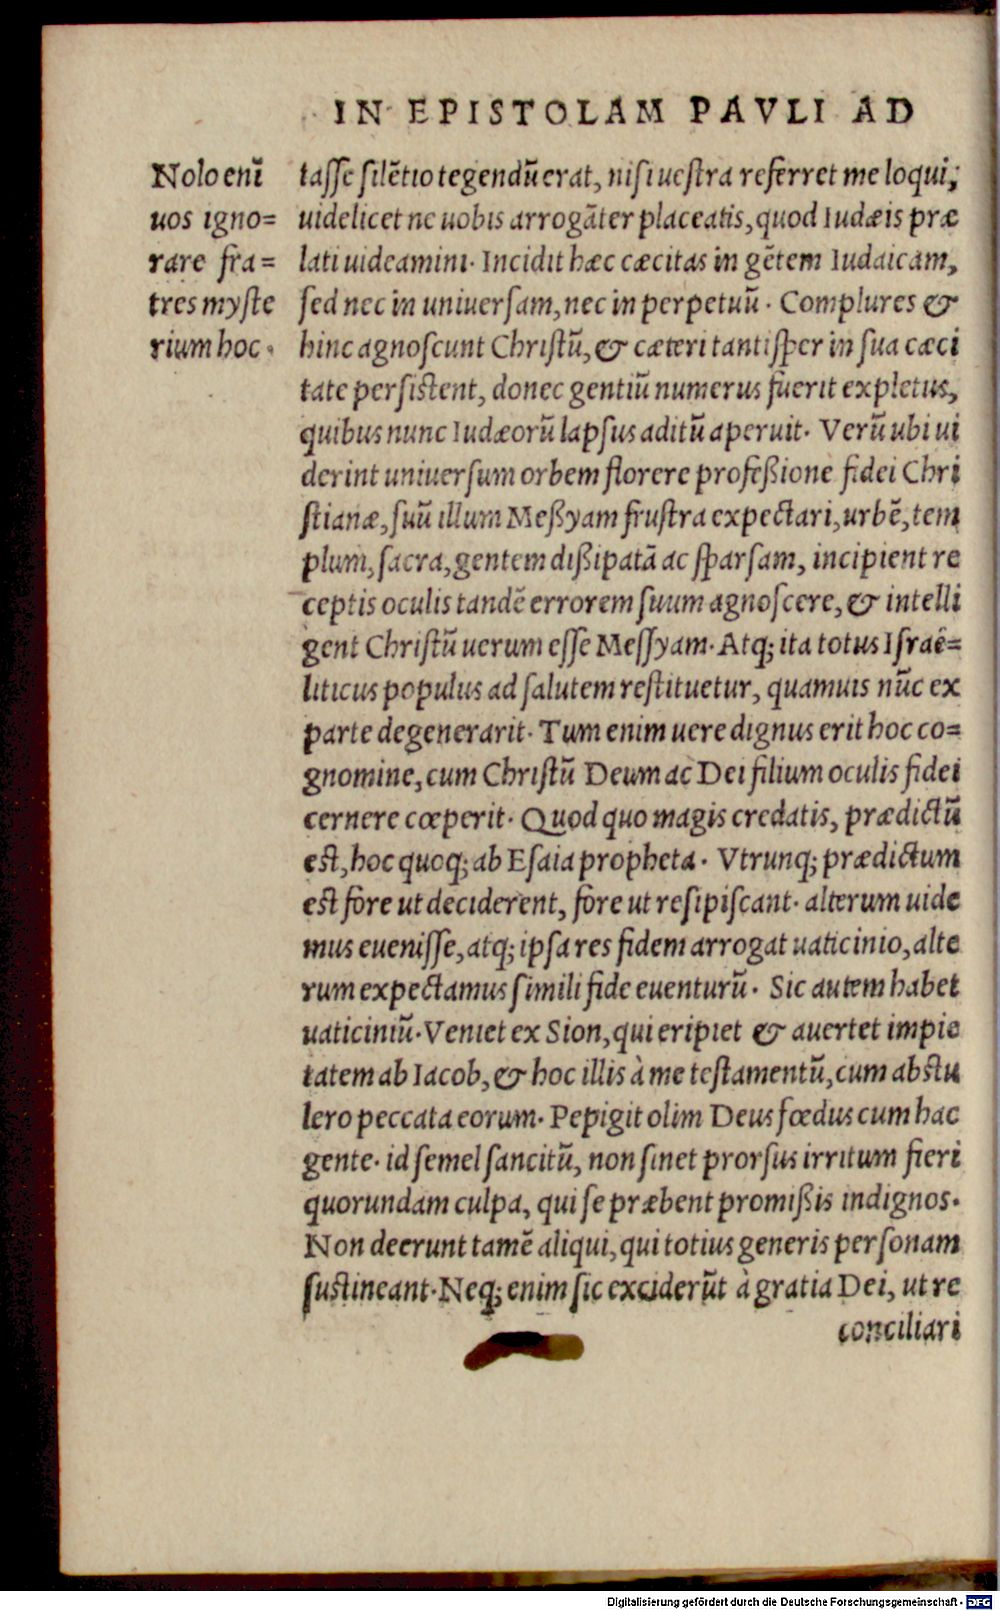 IN EPISTOLAM PAVLI AD
Nolo enī
uos igno=
rare fra=
tres myste
rium hoc.
tasse silētio tegendū erat, nisi uestra referret me loqui,
uidelicet ne uobis arrogāter placeatis, quod Iudæis præ
lati uideamini. Incidit hæc cæcitas in gētem Iudaicam,
sed nec in uniuersam, nec in perpetuū. Complures &
hinc agnoscunt Christū, & cæteri tantisper in sua cæci
tate persistent, donec gentiū numerus fuerit expletus,
quibus nunc Iudæorū lapsus aditū aperuit. Verū ubi ui
derint uniuersum orbem florere profeßione fidei Chri
stianæ, suū illum Meßyam frustra expectari, urbē, tem
plum, sacra, gentem dißipatā ac sparsam, incipient re
ceptis oculis tandē errorem suum agnoscere, & intelli
gent Christū uerum esse Messyam. Atq; ita totus Israë=
liticus populus ad salutem restituetur, quamuis nūc ex
parte degenerarit. Tum enim uere dignus erit hoc co=
gnomine, cum Christū Deum ac Dei filium oculis fidei
cernere cœperit. Quod quo magis credatis, prædictū
est, hoc quoq; ab Esaia propheta. Vtrunq; prædictum
est fore ut deciderent, fore ut resipiscant. alterum uide
mus euenisse, atq; ipsa res fidem arrogat uaticinio, alte
rum expectamus simili fide euenturū. Sic autem habet
uaticiniū. Veniet ex Sion, qui eripiet & auertet impie
tatem ab Iacob, & hoc illis à me testamentū, cum abstu
lero peccata eorum. Pepigit olim Deus fœdus cum hac
gente. id semel sancitū, non sinet prorsus irritum fieri
quorundam culpa, qui se præbent promißis indignos.
Non deerunt tamē aliqui, qui totius generis personam
sustineant. Neq; enim sic exciderūt à gratia Dei, ut re
conciliari
Digitalisierung gefördert durch die Deutsche Forschungsgemeinschaft - DFG